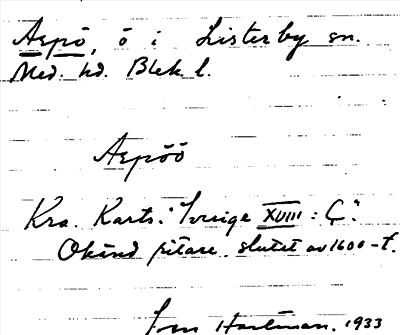 Aspö, ö i Listerby sn.
Med. hd. Blek l.
Aspöö
Kra. Kartv. Sverige XVIII : Ç.
Okänd ritare slutet av 1600-t.
Hartman. 1933